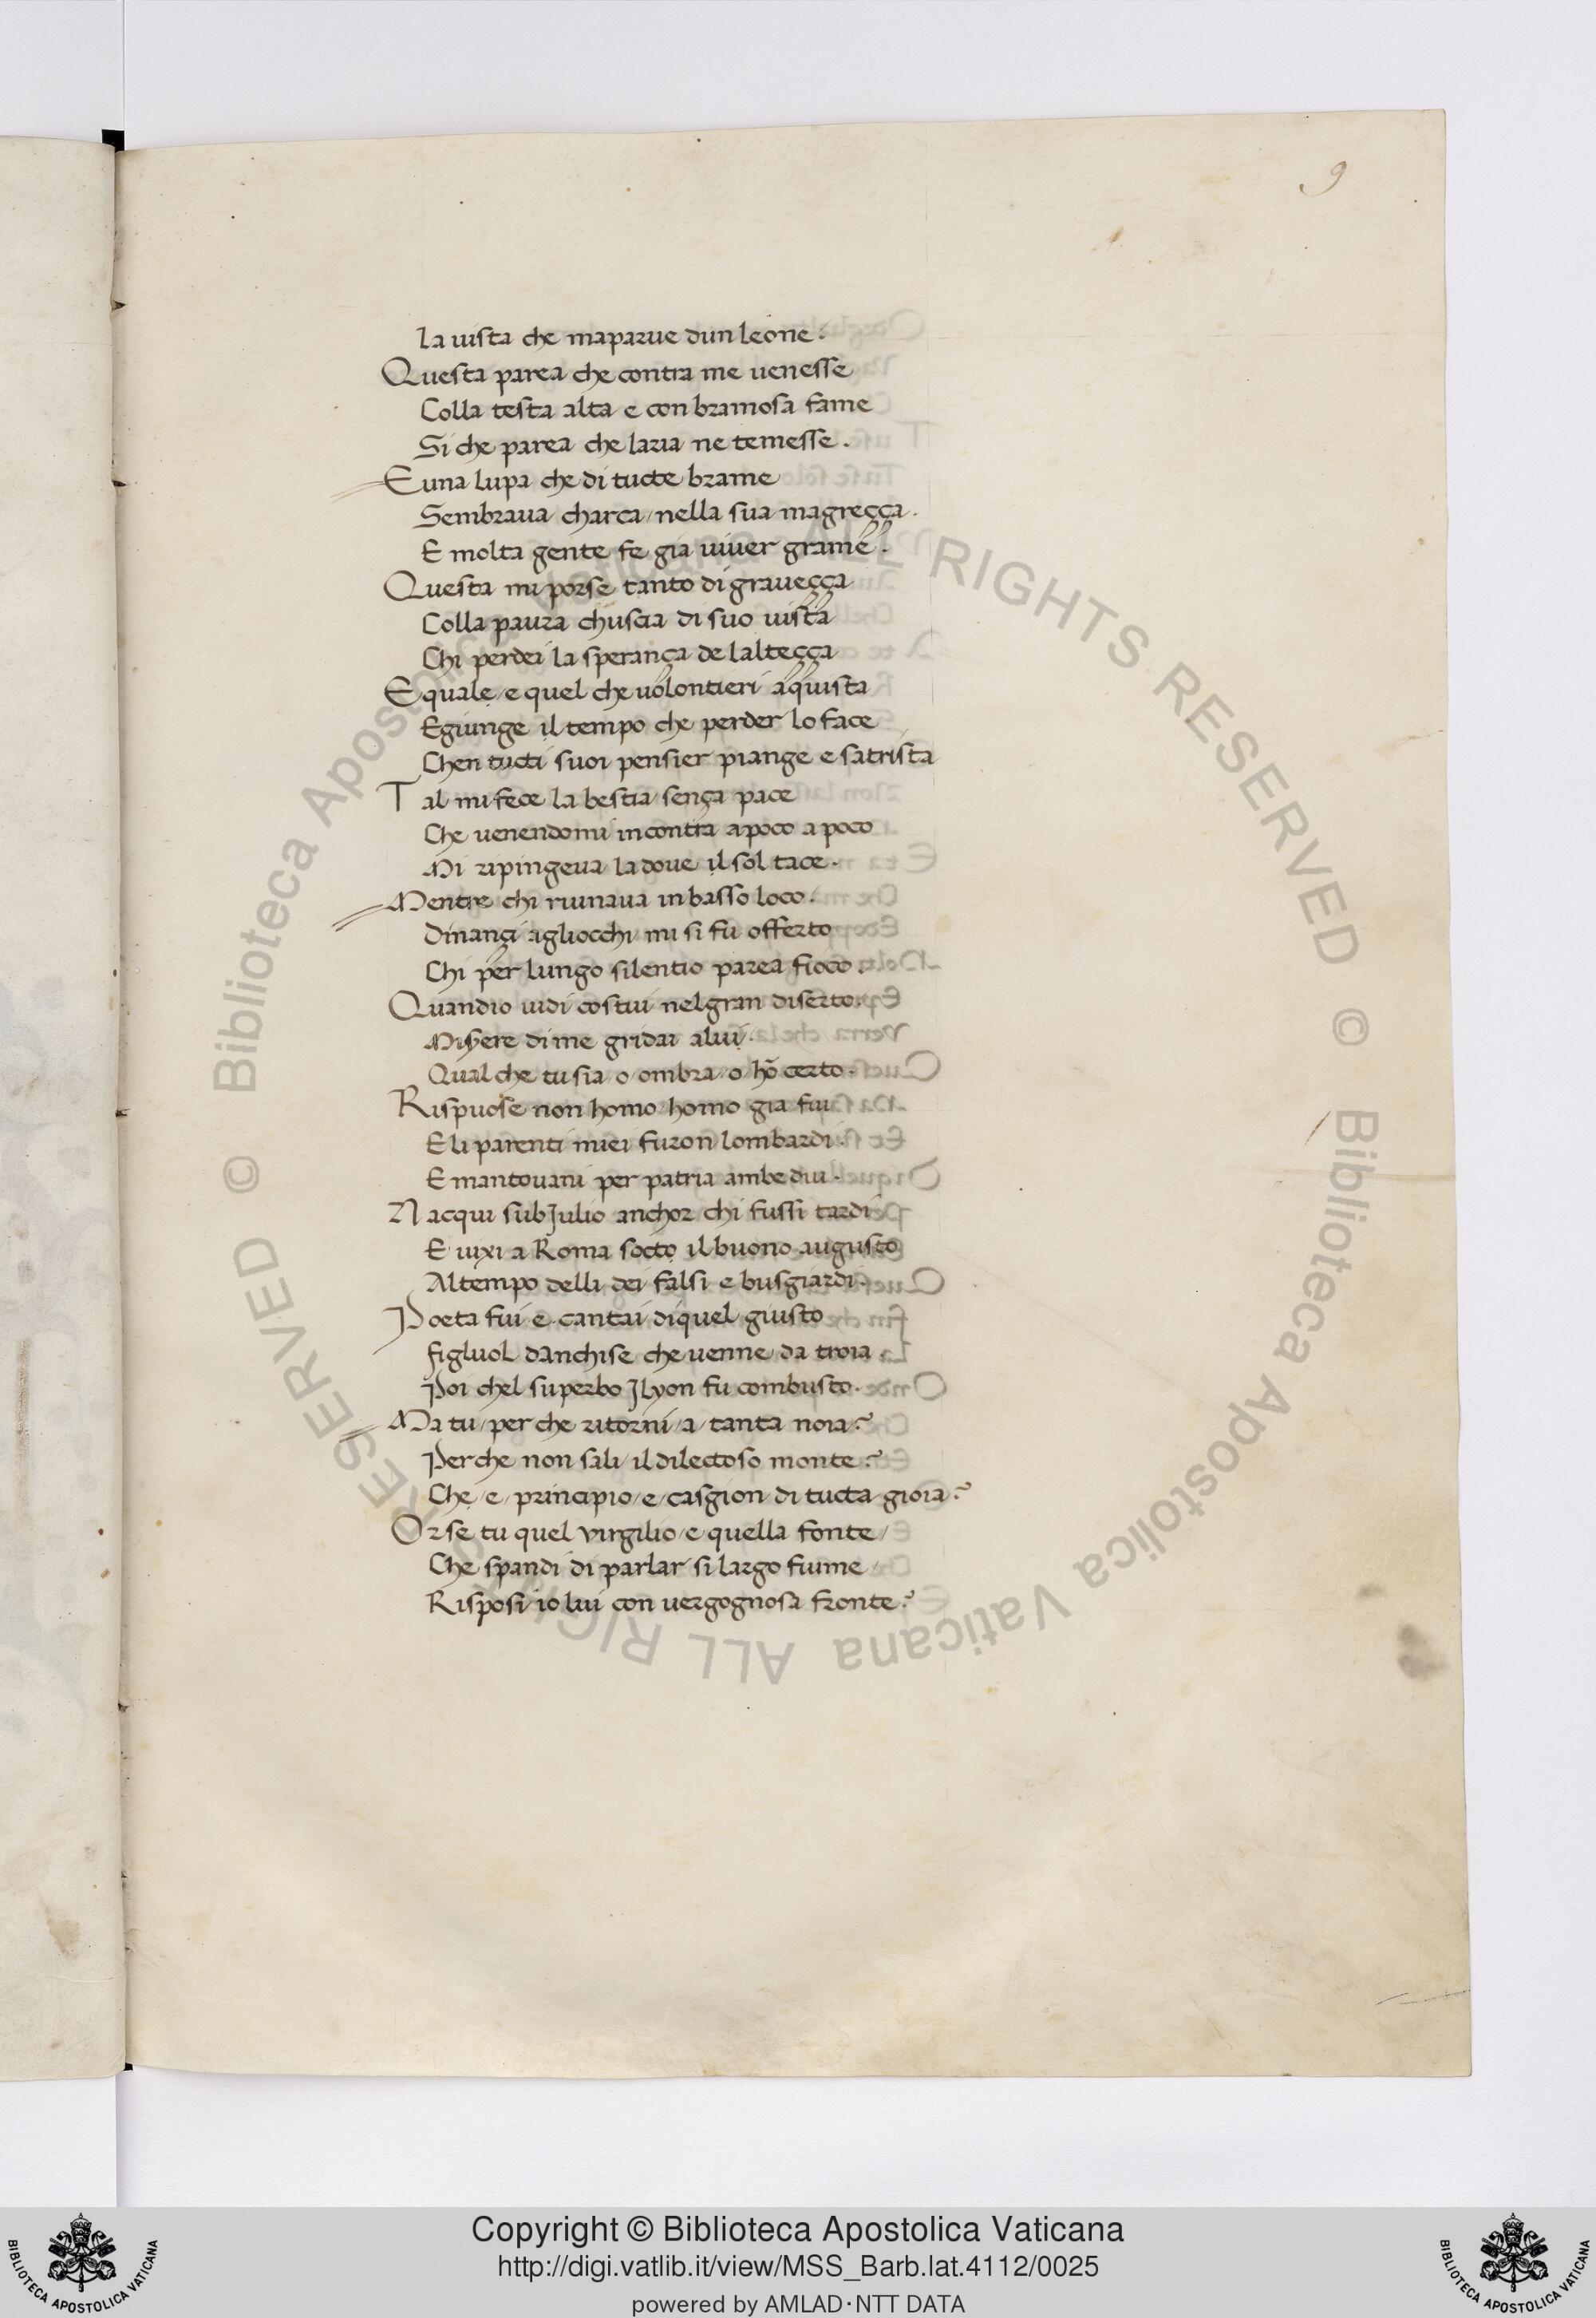 9
La uista che maparue dun leone.
Questa parea che contra me uenesse
Colla testa alta e con bramosa fame
Si che parea che laria ne temesse.
E una lupa che di tucte brame
Sembraua charca/nella sua magreçça.
E molta gente fe gia uiuer grame.
Questa mi porse tanto di graueçça
Colla paura chuscia di suo uista
Chi perdei la sperança de lalteçça
E quale/e quel che uolontieri aquista
E giunge il tempo che perder lo face
Chen tucti suoi pensier piange e satrista
Tal mi fece la bestia sença pace
Che uenendomi incontra apoco apoco
Mi ripingeua la doue il sol tace.
Mentre chi ruinaua in basso loco.
Dinançi agliocchi mi si fu offerto
Chi per lungo silentio parea fioco.
Quandio uidi costui nel gran diserto.
Miserere di me gridai a lui.
Qual che tu sia/o/ombra/o/hõ certo.
Rispuose non homo/homo gia fui
E li parenti miei furon lombardi.
E mantouani per patria ambedui.
Nacqui sub Julio anchor chi fussi tardi
E uixi a Roma socto il buono augusto
Al tempo delli dei falsi e busgiardi.
Poeta fui e cantai di quel giusto
figluol danchise che uenne da troia.
Poi chel superbo Jlyon fu combusto.
Ma tu/per che ritorni/a/tanta noia?
Perche non sali/il dilectoso monte?
Che/e/principio/e/casgion di tucta gioia?
Or se tu quel virgilio/e quella fonte/
Che spandi di parlar si largo fiume/
Risposi io lui con uergognosa fronte?
© Biblioteca Apostolica Vaticana ALL RIGHTS RESERVED © Biblioteca Apostolica Vaticana ALL RIGHTS RESERVED
Copyright © Biblioteca Apostolica Vaticana
http://digi.vatlib.it/view/MSS_Barb.lat.4112/0025
powered by AMLAD·NTT DATA
BIBLIOTECA APOSTOLICA VATICANA
BIBLIOTECA APOSTOLICA VATICANA